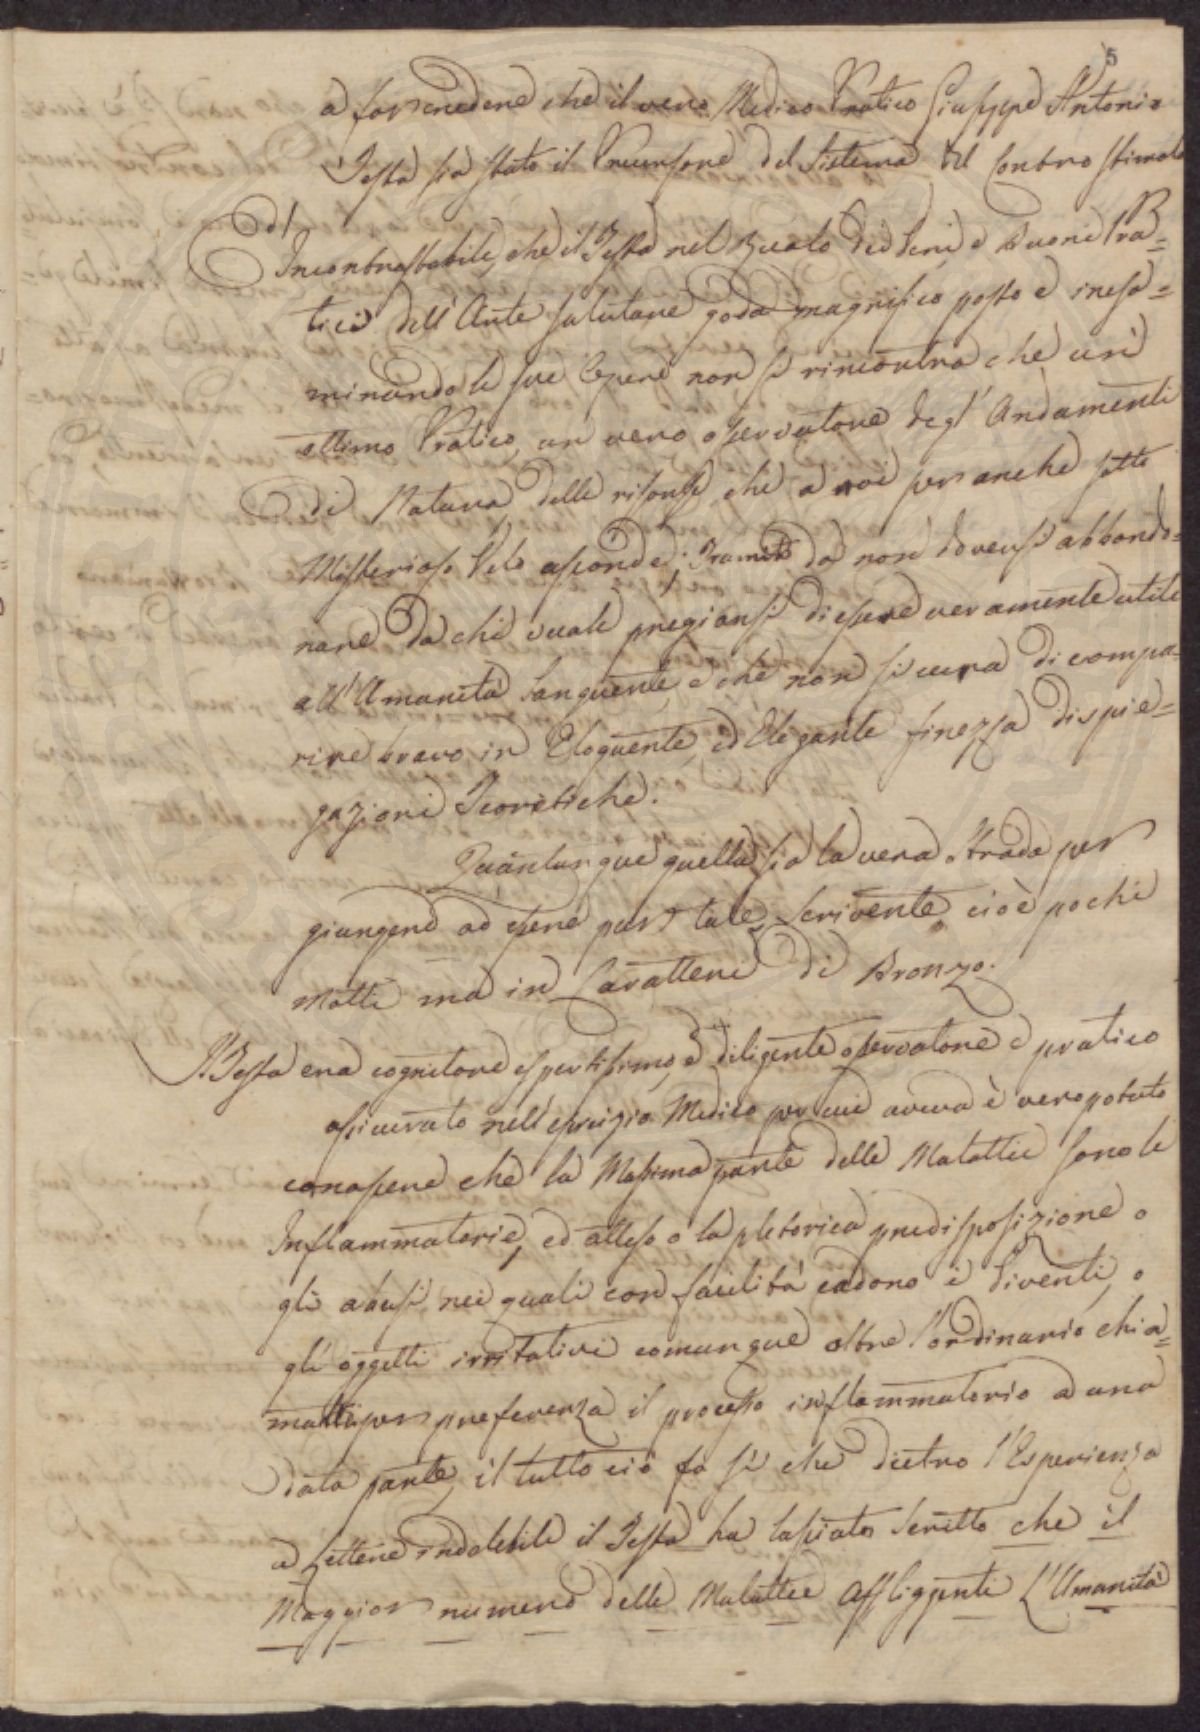 5
a far credere che il vero Medico Pratico Giuseppe Antonio
Testa sia stato il Precursore del Sistema del Controstimolo
È Incontrastabile, che il Testa nel Ruolo dei veri e buoni Pra=
tici dell'Arte salutare goda magnifico posto e inesa=
minando le sue Opere non si rincontra che un
ottimo Pratico, un vero osservatore degl'Andamenti
di Natura delle risorse che a noi per anche sotto
Misterioso Velo asconde; Tramite da non doversi abbando=
nare da chi vuole pregiarsi di essere veramente utile
all'Umanità Languente, e che non si cura di compa=
rire bravo in Eloquente, ed Elegante finezza di spie=
gazioni Teoretiche.
Quantunque quella sia la vera Strada per
giungere ad essere pur tale, Scrivente, cioè pochi
Motti ma in Caratteri di Bronzo.
Il Testa era cognitore espertissimo, e diligente osservatore e pratico
assicurato nell'esercizio Medico per cui aveva è vero potuto
conoscere che la Massima parte delle Malattie sono le
Inflammatorie, ed atteso o la pletorica predisposizione o
gli abusi nei quali con facilità cadono i Viventi, o
gli oggetti irritativi comunque oltre l'ordinario chia=
matti per preferenza il processo inflammatorio a una
data parte, il tutto ciò fa sì che dietro l'Esperienza
a Lettere indelebile il Testa ha lasciato scritto che il
Maggior numero delle Malattie affliggenti L'Umanità